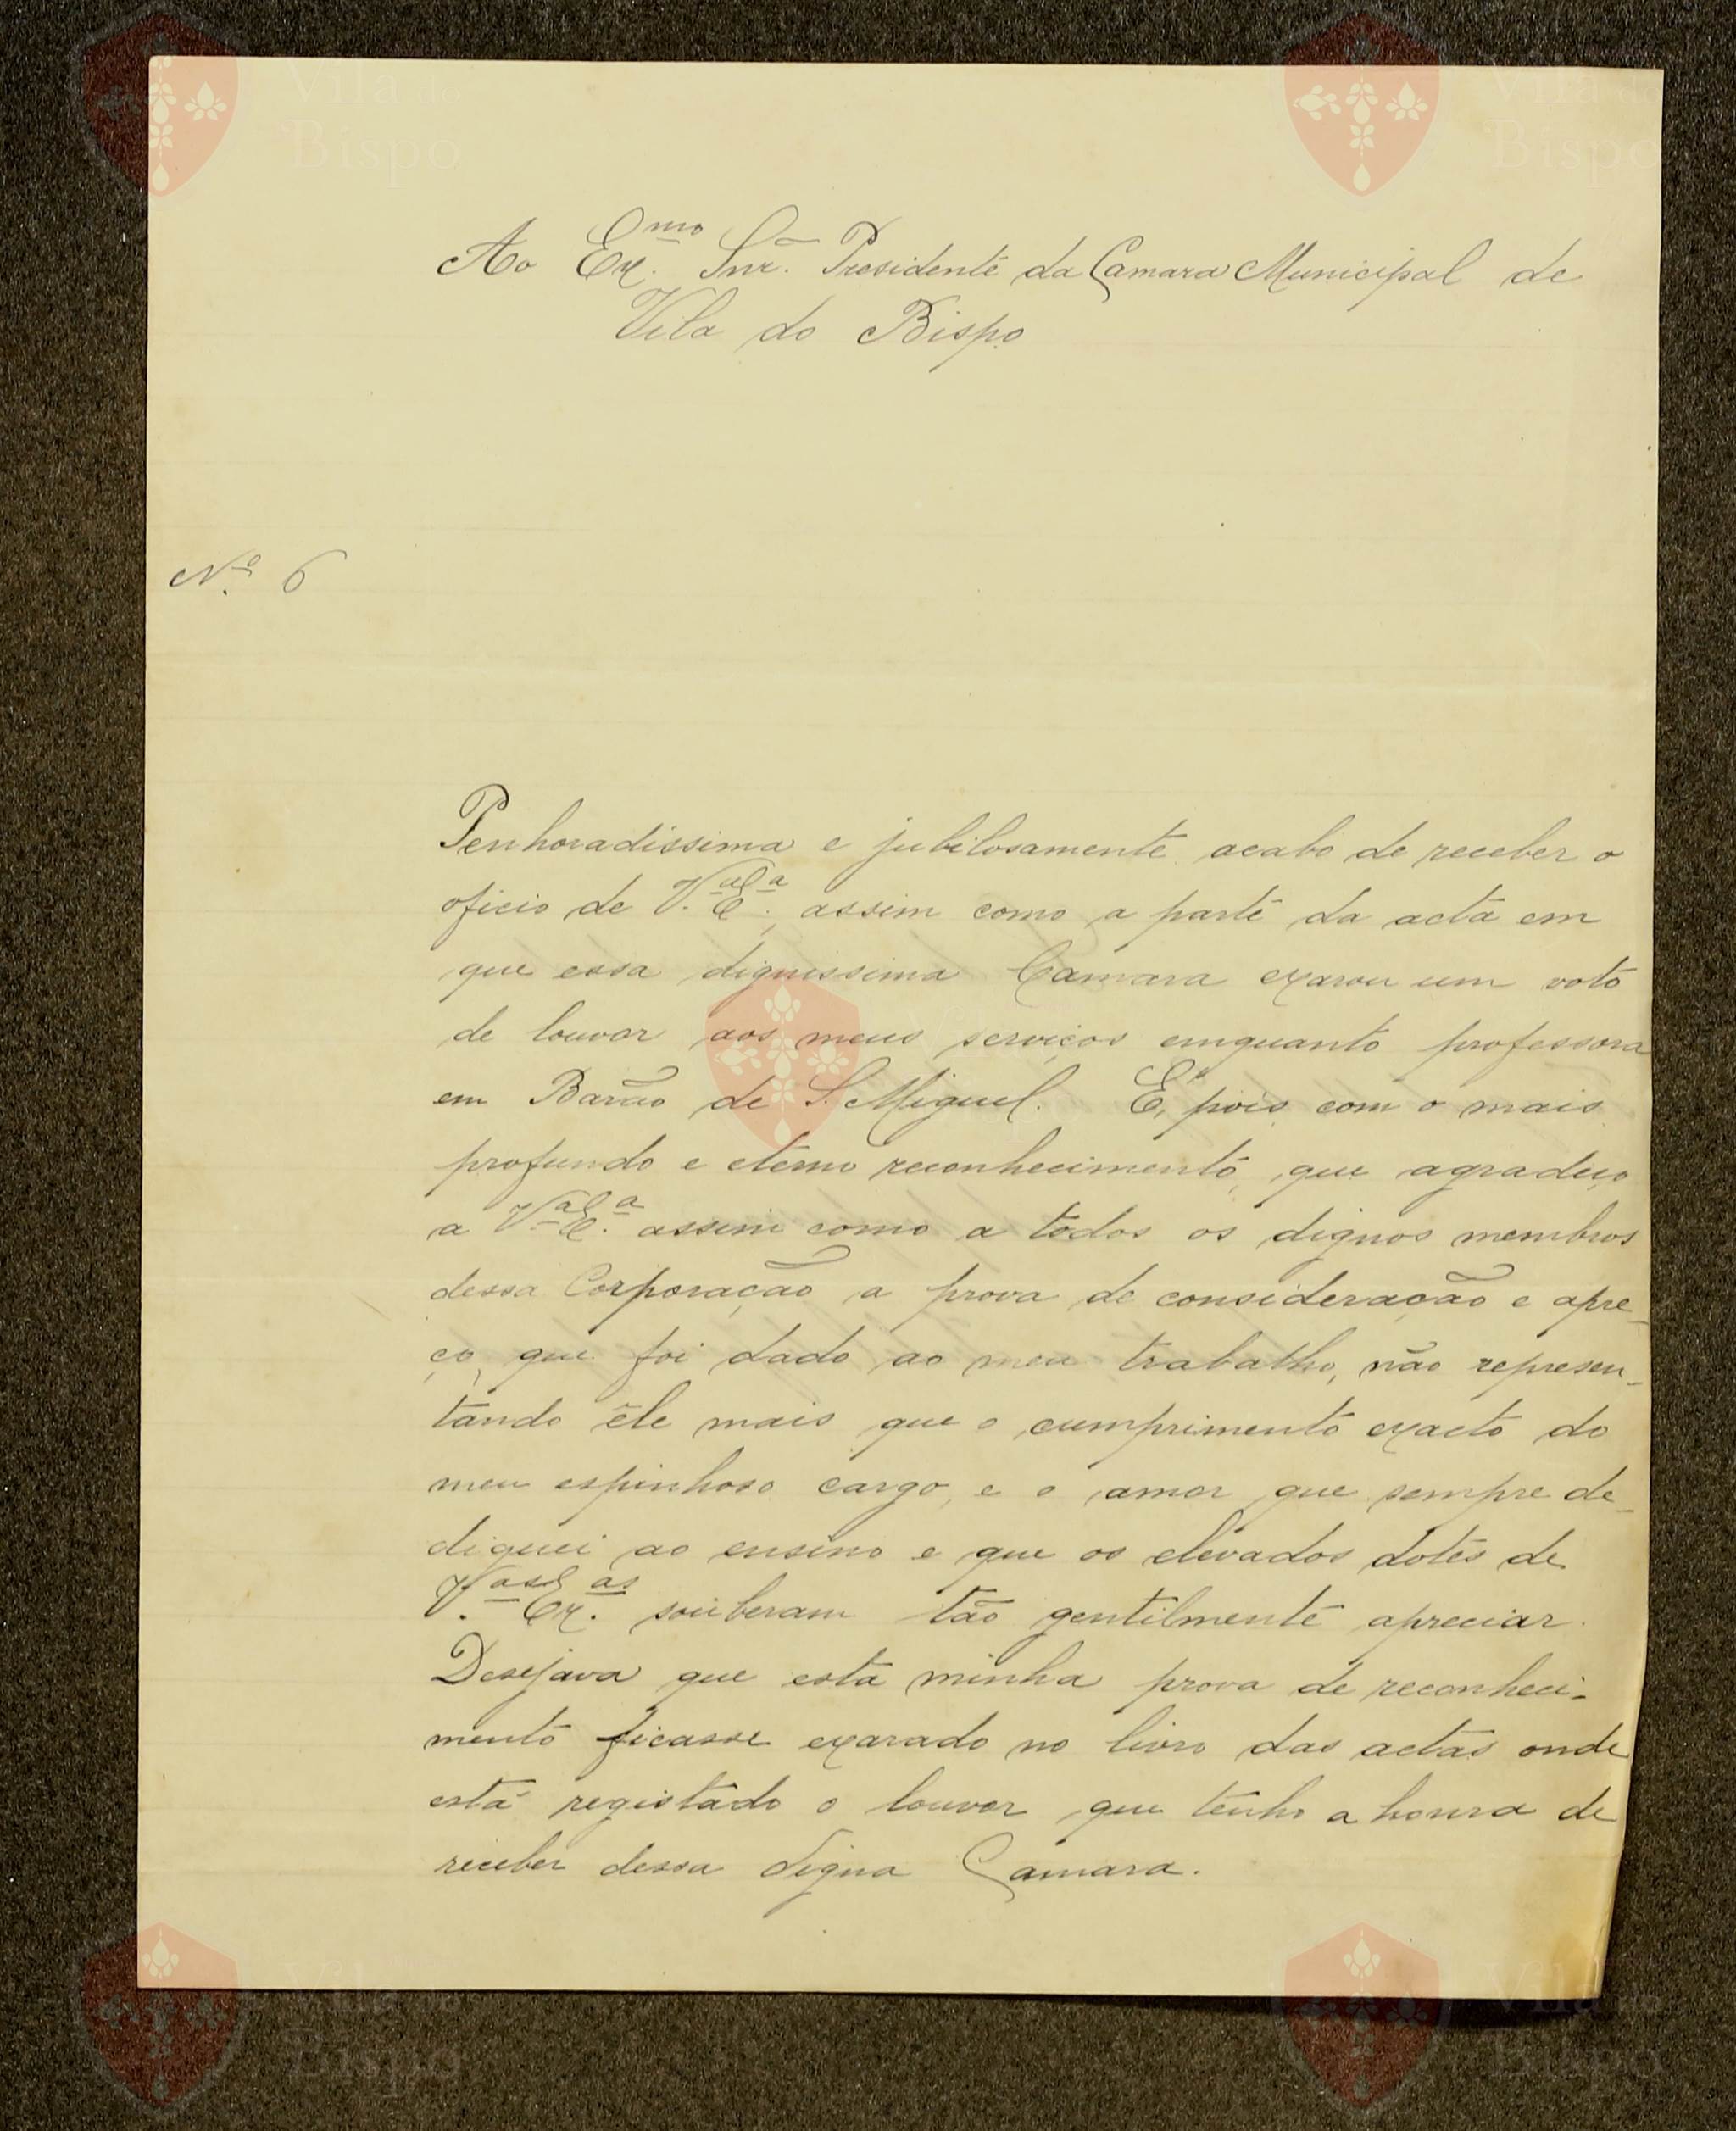 Vila do
Bispo
Vila do
Bispo
Ao Ex.mo Snr. Presidente da Camara Municipal de
Vila do Bispo
N.º 6
Penhoradissima e jubilosamente acabo de receber o
oficio de V.a E.a, assim como a parte da acta em
que essa dignissima Camara exarou um voto
de louvor aos meus serviços emquanto professora
em Barão de S. Miguel. É, pois, com o mais
profundo e eterno reconhecimento, que agradeço
a V.a E.a assim como a todos os dignos membros
dessa Corporação a prova de consideração e apre-
ço, que foi dado ao meu trabalho, não represen-
tando êle mais que o cumprimento exacto do
meu espinhoso cargo, e o amor que sempre de-
diquei ao ensino e que os elevados dotes de
V.as Ex.as souberam tão gentilmente apreciar.
Desejava que esta minha prova de reconheci-
mento ficasse exarado no livro das actas onde
está registado o louvor que tenho a honra de
receber dessa digna Camara.
Vila do
Bispo
Vila do
Bispo